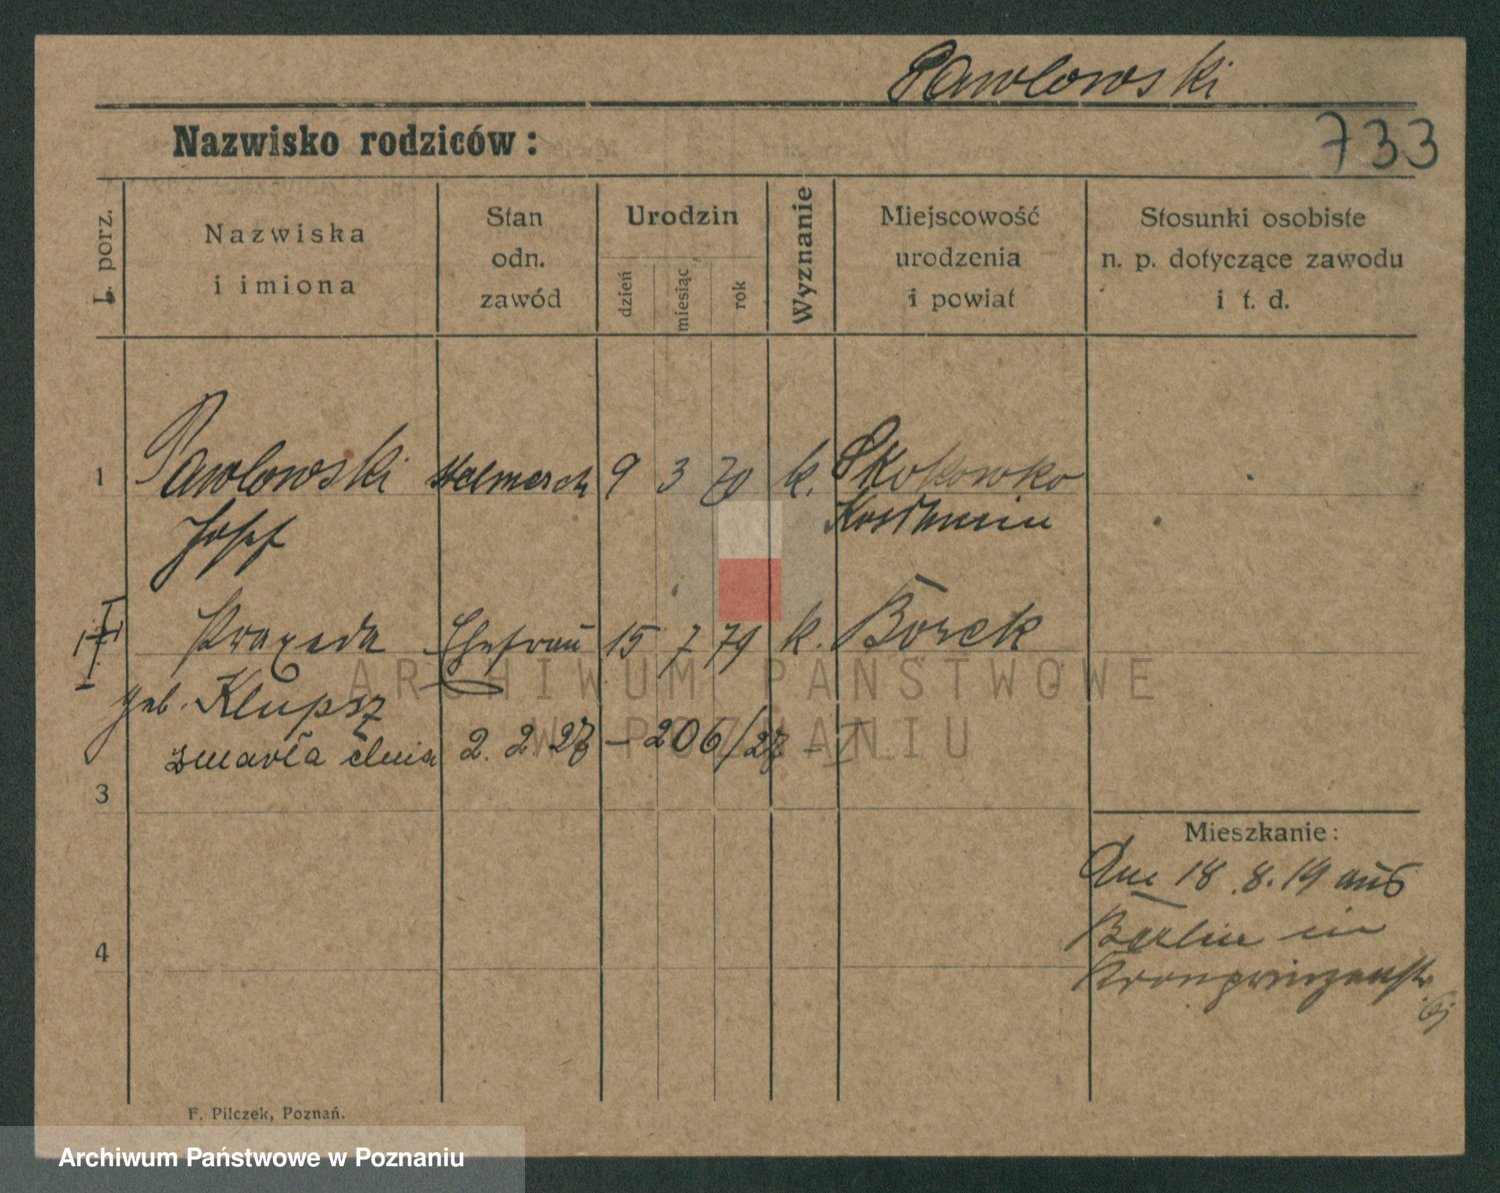 Pawlowski
733
Nazwisko rodziców:
L. porz.
Nazwiska
i imiona
Stan
odn.
zawód
Urodzin
dzień
miesiąc
rok
Wyznanie
Miejscowość
urodzenia
i powiat
Stosunki osobiste
n. p. dotyczące zawodu
i t. d.
1 Pawlowski 9 3 70 k. Skokowko
Josef Koschmin
Praxeda Ehefrau 15 7 79 k. Borek
geb. Klupsz
zmarła dnia 2. 2. 27 – 206/27 –
3
Mieszkanie:
18.8.19 aus
Berlin in
4
Kronprinzenstr.
F. Pilczek, Poznań.
ARCHIWUM PAŃSTWOWE
W POZNANIU
Archiwum Państwowe w Poznaniu